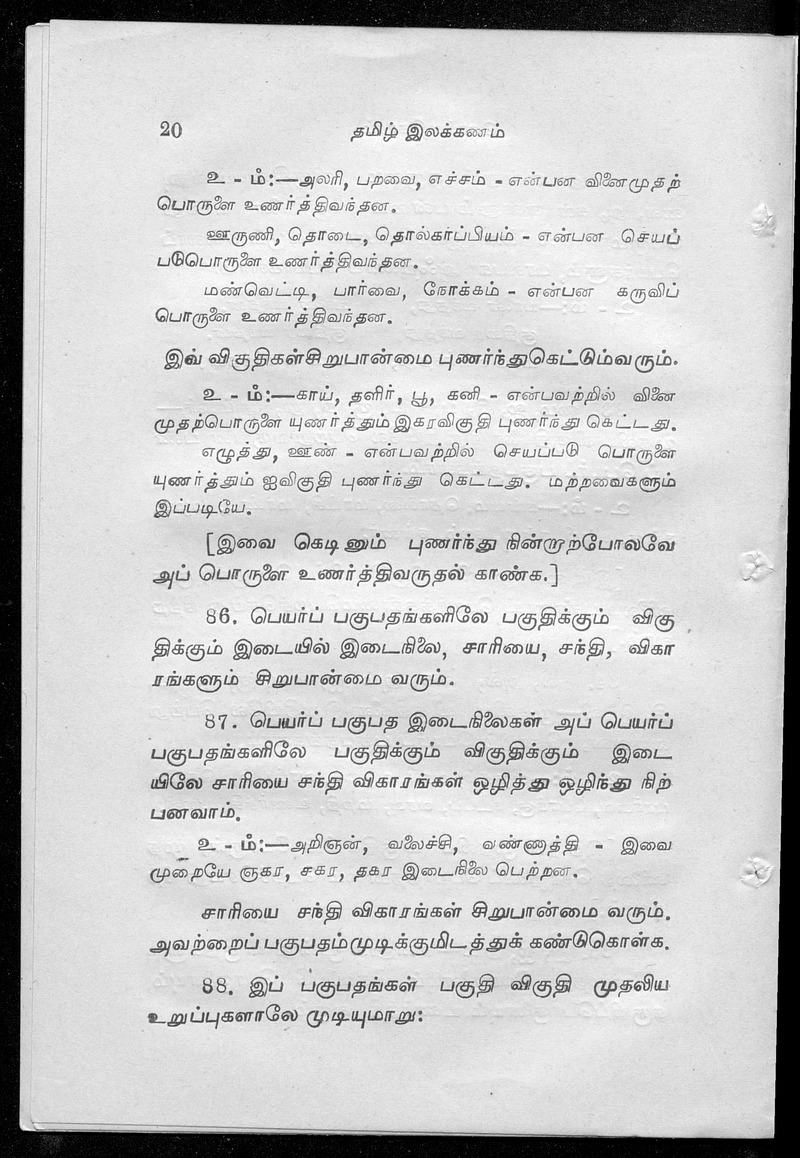 20 தமிழ் இலக்கணம்
உ - ம்:—அலரி, பறவை, எச்சம் - என்பன வினைமுதற்
பொருளை உணர்த்திவந்தன.
ஊருணி, தொடை, தொல்காப்பியம் - என்பன செயப்
படுபொருளை உணர்த்திவந்தன.
மண்வெட்டி, பார்வை, நோக்கம் - என்பன கருவிப்
பொருளை உணர்த்திவந்தன.
இவ் விகுதிகள்சிறுபான்மை புணர்ந்துகெட்டும்வரும்.
உ - ம்:—காய், தளிர், பூ, கனி - என்பவற்றில் வினை
முதற்பொருளை யுணர்த்தும்இகரவிகுதி புணர்ந்து கெட்டது.
எழுத்து, ஊண் - என்பவற்றில் செயப்படு பொருளை
யுணர்த்தும் ஐவிகுதி புணர்ந்து கெட்டது. மற்றவைகளும்
இப்படியே.
[இவை கெடினும் புணர்ந்து நின்றாற்போலவே
அப் பொருளை உணர்த்திவருதல் காண்க.]
86. பெயர்ப் பகுபதங்களிலே பகுதிக்கும் விகு
திக்கும் இடையில் இடைநிலை, சாரியை, சந்தி, விகா
ரங்களும் சிறுபான்மை வரும்.
87. பெயர்ப் பகுபத இடைநிலைகள் அப் பெயர்ப்
பகுபதங்களிலே பகுதிக்கும் விகுதிக்கும் இடை
யிலே சாரியை சந்தி விகாரங்கள் ஒழித்து ஒழிந்து நிற்
பனவாம்.
உ - ம்:—அறிஞன், வலைச்சி, வண்ணாத்தி - இவை
முறையே ஞகர, சகர, தகர இடைநிலை பெற்றன.
சாரியை சந்தி விகாரங்கள் சிறுபான்மை வரும்.
அவற்றைப் பகுபதம்முடிக்குமிடத்துக் கண்டுகொள்க.
88. இப் பகுபதங்கள் பகுதி விகுதி முதலிய
உறுப்புகளாலே முடியுமாறு: